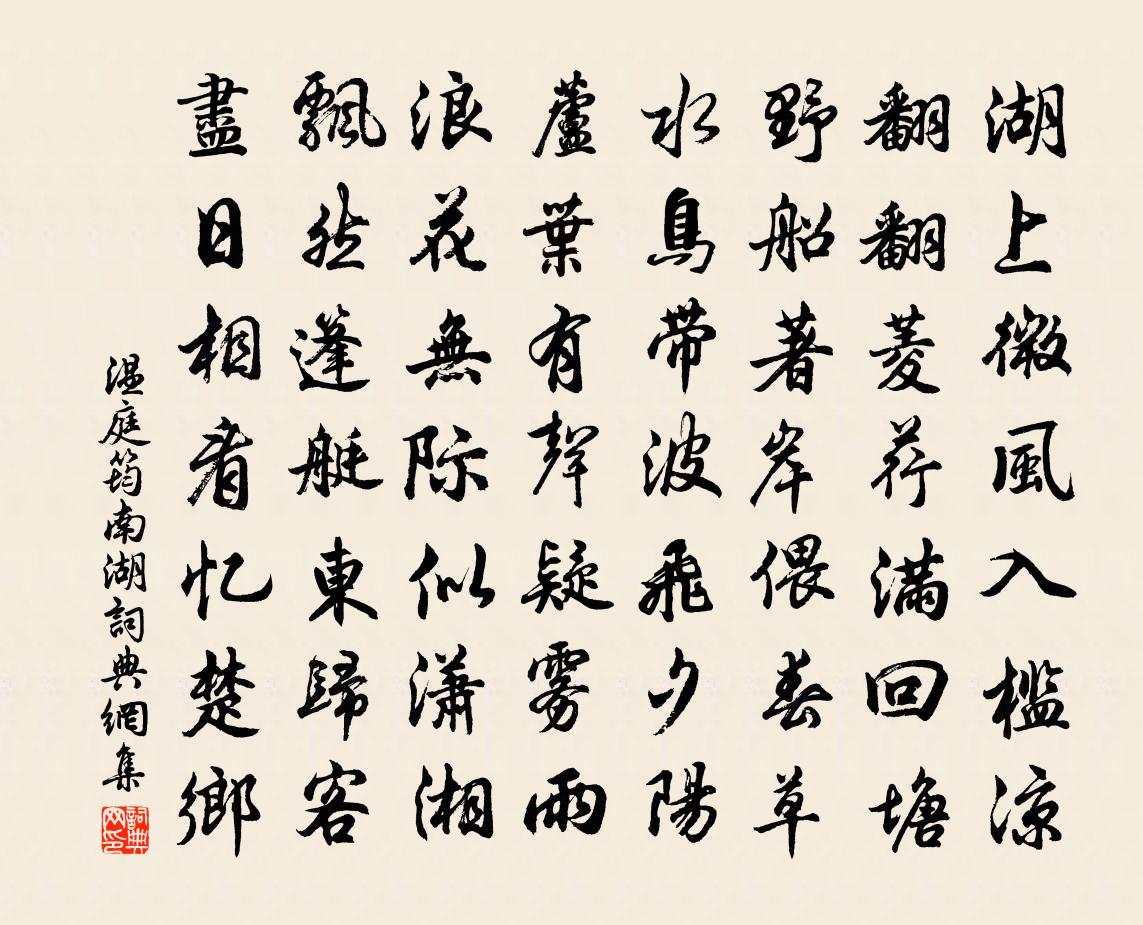 湖上微風入檻涼
翻翻菱荇滿回塘
野船著岸偎春草
水鳥帶波飛夕陽
蘆葉有聲疑雾雨
浪花無際似瀟湘
飄然篷艇東歸客
盡日相看忆楚鄉
温庭筠南湖詞典網集
詞典網印